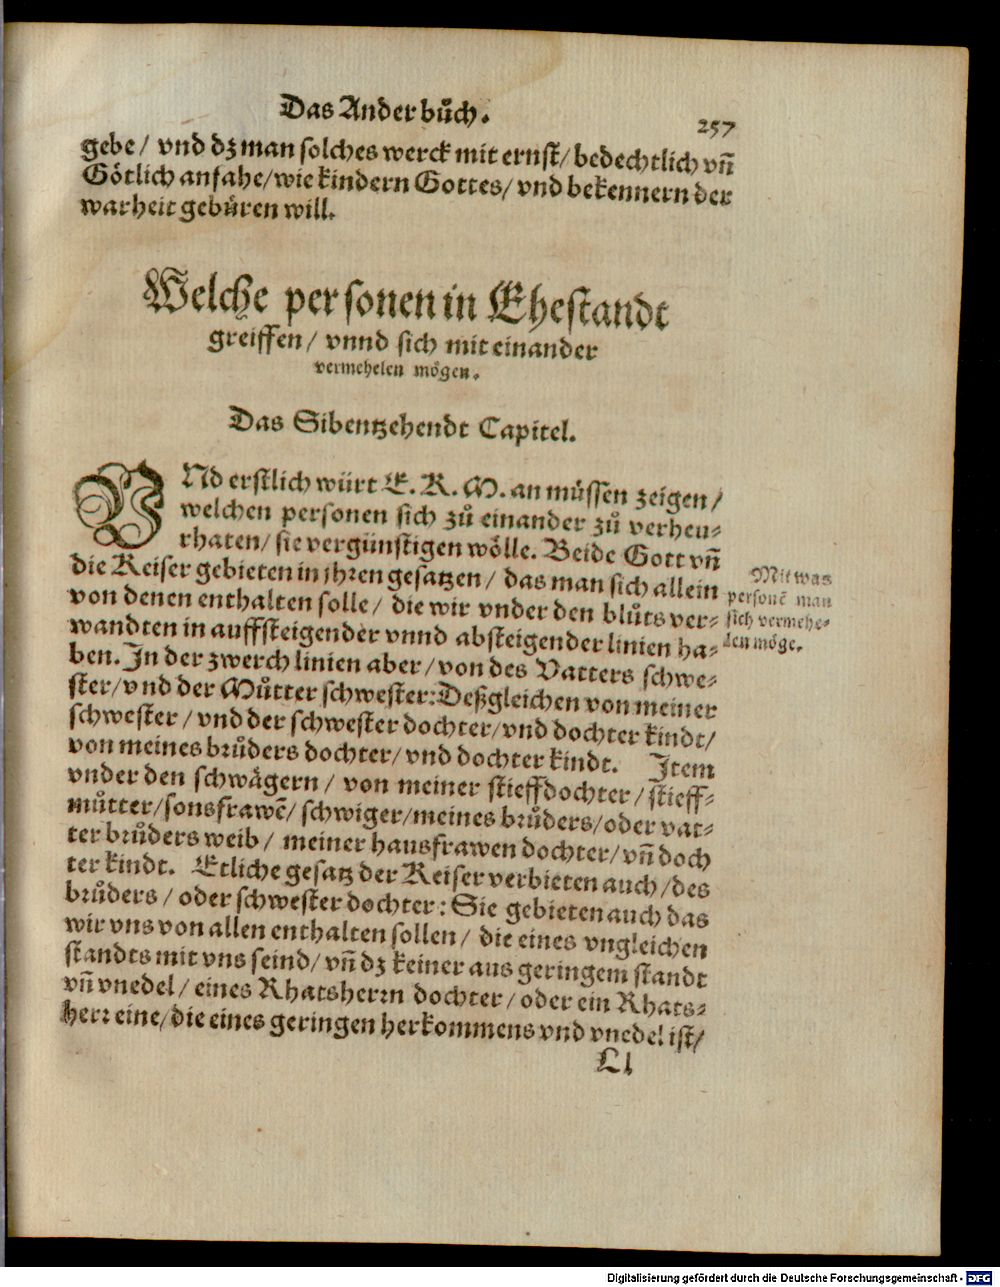 Das Ander bůch.
257
gebe / vnd dz man solches werck mit ernst / bedechtlich vñ
Götlich anfahe / wie kindern Gottes / vnd bekennern der
warheit gebüren will.
Welche personen in Ehestandt
greiffen / vnnd sich mit einander
vermehelen mögen.
Das Sibentzehendt Capitel.
VNd erstlich würt E. K. M. an müssen zeigen /
welchen personen sich zů einander zů verheu-
rhaten / sie vergünstigen wölle. Beide Gott vñ
die Keiser gebieten in jhren gesatzen / das man sich allein
von denen enthalten solle / die wir vnder den blůts ver-
wandten in auffsteigender vnnd absteigender linien ha-
ben. In der zwerch linien aber / von des Vatters schwe-
ster / vnd der Můtter schwester: Deßgleichen von meiner
schwester / vnd der schwester dochter / vnd dochter kindt /
von meines brůders dochter / vnd dochter kindt. Item
vnder den schwägern / von meiner stieffdochter / stieff-
můtter / sonsfrawē / schwiger / meines brůders / oder vat-
ter brůders weib / meiner hausfrawen dochter / vñ doch
ter kindt. Etliche gesatz der Keiser verbieten auch / des
brůders / oder schwester dochter: Sie gebieten auch das
wir vns von allen enthalten sollen / die eines vngleichen
standts mit vns seind / vñ dz keiner aus geringem standt
vñ vnedel / eines Rhatsherrn dochter / oder ein Rhats-
herr eine / die eines geringen herkommens vnd vnedel ist /
Ll
Mit was
personē man
sich vermehe-
len möge.
Digitalisierung gefördert durch die Deutsche Forschungsgemeinschaft - DFG